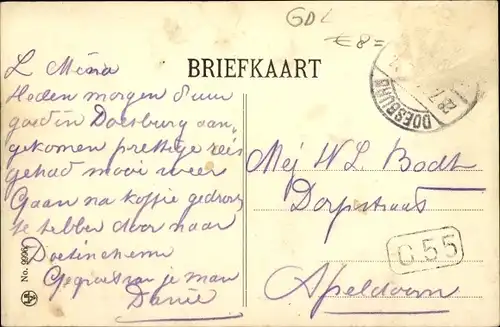 GDL
€8=
BRIEFKAART
DOESBURG
L Mina
Heden morgen 8 uur
goed in Doesburg aan,
gekomen prettige reis
gehad mooi weer
Gaan na koffie gedron
te hebben door naar
Doetinchem
Gegroet van je man
Mej W L Bodt
Dorpstraat
Apeldoorn
C 55
No. 9998